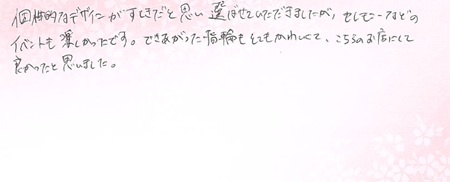 個性的なデザインがすてきだと思い選ばせていただきましたが、セレモニーなどの
イベントも楽しかったです。できあがった指輪もとてもかわいくて、こちらのお店にして
良かったと思いました。